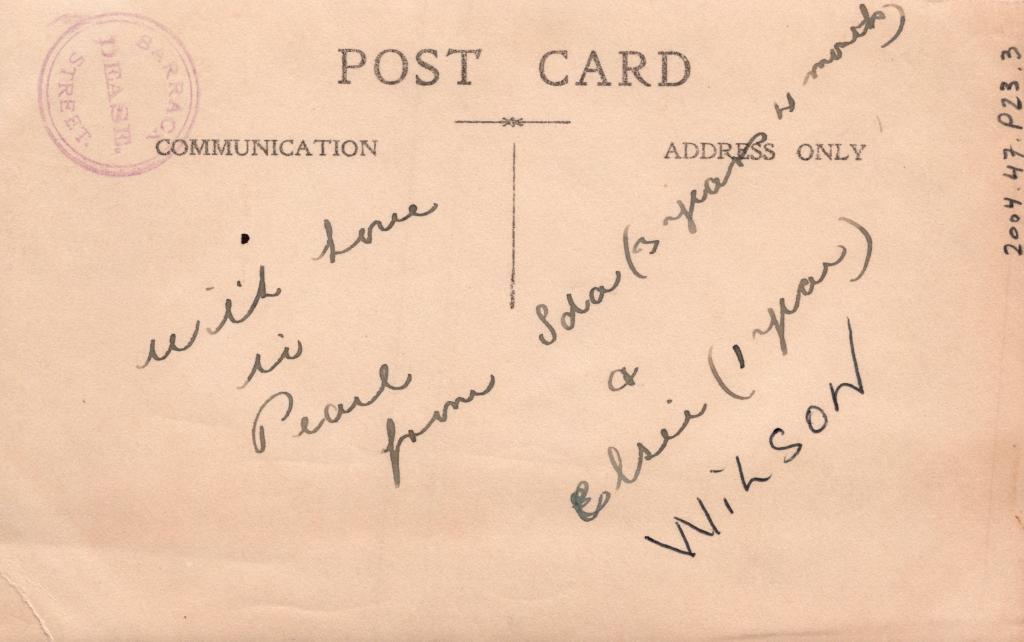 BARRAC
DEASE.
STREET.
POST CARD
COMMUNICATION
ADDRESS ONLY
with Love
to
Pearl
from
Ida (3 years 11 month)
&
Elsie (1 year)
WILSON
2004.47.P23.3